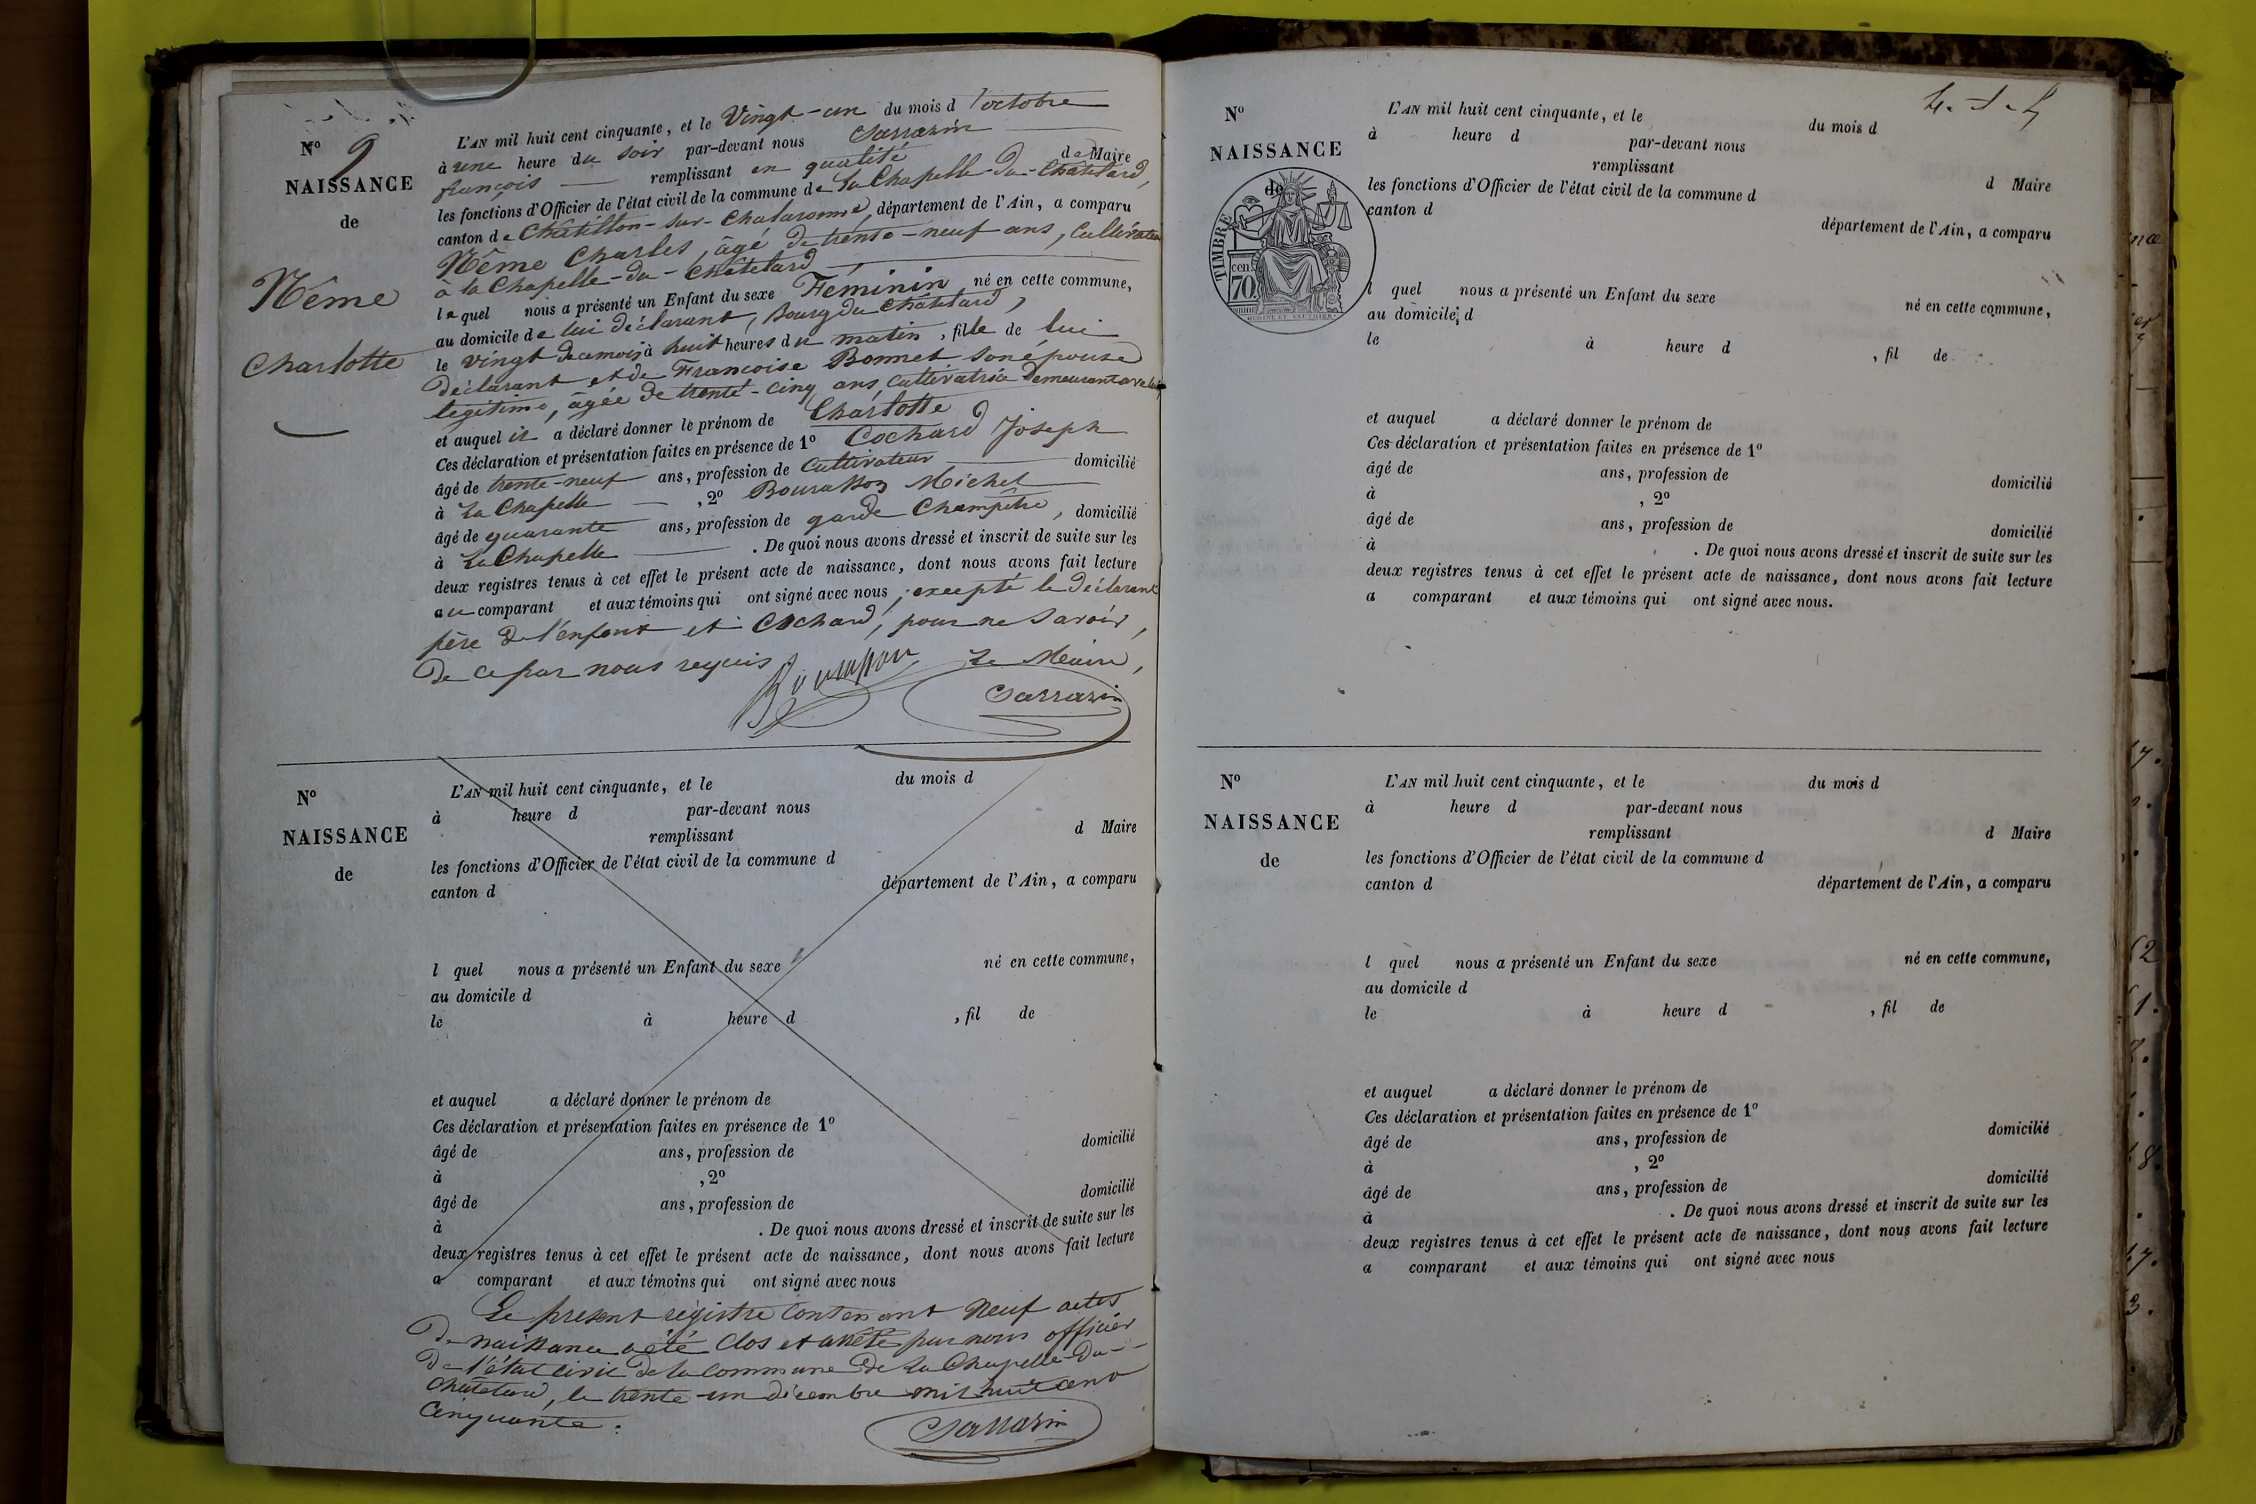 N° 9
NAISSANCE
de
Nême
Charlotte
L'AN mil huit cent cinquante, et le Vingt-un du mois d'octobre
à une heure du soir par-devant nous Sarrazin
françois remplissant en qualité de Maire
les fonctions d'Officier de l'état civil de la commune de La Chapelle-du-Châtelard,
canton de Châtillon-sur-Chalaronne, département de l'Ain, a comparu
Nême Charles, âgé de trente-neuf ans, Cultivateur
à la Chapelle-du-Châtelard
lequel nous a présenté un Enfant du sexe Féminin né en cette commune,
au domicile de lui déclarant, bourg du Châtelard,
le vingt de ce mois à huit heures du matin, fille de lui
déclarant et de Françoise Bonnet son épouse
légitime, âgée de trente-cinq ans, cultivatrice demeurant avec lui,
et auquel il a déclaré donner le prénom de Charlotte
Ces déclaration et présentation faites en présence de 1° Cochard Joseph
âgé de trente-neuf ans, profession de Cultivateur domicilié
à La Chapelle, 2° Bourasson Michel
âgé de quarante ans, profession de garde Champêtre, domicilié
à La Chapelle. De quoi nous avons dressé et inscrit de suite sur les
deux registres tenus à cet effet le présent acte de naissance, dont nous avons fait lecture
au comparant et aux témoins qui ont signé avec nous, excepté le déclarant
père de l'enfant et Cochard, pour ne savoir,
de ce par nous requis
Le Maire,
Sarrazin
N°
NAISSANCE
de
L'AN mil huit cent cinquante, et le du mois d
à heure d par-devant nous
remplissant d Maire
les fonctions d'Officier de l'état civil de la commune d
canton d département de l'Ain, a comparu
l quel nous a présenté un Enfant du sexe né en cette commune,
au domicile d
le à heure d , fil de
et auquel a déclaré donner le prénom de
Ces déclaration et présentation faites en présence de 1°
âgé de ans, profession de domicilié
à , 2°
âgé de ans, profession de domicilié
à . De quoi nous avons dressé et inscrit de suite sur les
deux registres tenus à cet effet le présent acte de naissance, dont nous avons fait lecture
a comparant et aux témoins qui ont signé avec nous
Le présent registre contenant neuf actes
de naissance a été clos et arrêté par nous officier
de l'état civil de la commune de La Chapelle-du-
Châtelard, le trente-un décembre mil huit cent
cinquante.
Sarrazin
N°
NAISSANCE
de
TIMBRE
cen
70
L'AN mil huit cent cinquante, et le du mois d
à heure d par-devant nous
remplissant d Maire
les fonctions d'Officier de l'état civil de la commune d
canton d département de l'Ain, a comparu
l quel nous a présenté un Enfant du sexe né en cette commune,
au domicile d
le à heure d , fil de
et auquel a déclaré donner le prénom de
Ces déclaration et présentation faites en présence de 1°
âgé de ans, profession de domicilié
à , 2°
âgé de ans, profession de domicilié
à . De quoi nous avons dressé et inscrit de suite sur les
deux registres tenus à cet effet le présent acte de naissance, dont nous avons fait lecture
a comparant et aux témoins qui ont signé avec nous.
N°
NAISSANCE
de
L'AN mil huit cent cinquante, et le du mois d
à heure d par-devant nous
remplissant d Maire
les fonctions d'Officier de l'état civil de la commune d
canton d département de l'Ain, a comparu
l quel nous a présenté un Enfant du sexe né en cette commune,
au domicile d
le à heure d , fil de
et auquel a déclaré donner le prénom de
Ces déclaration et présentation faites en présence de 1°
âgé de ans, profession de domicilié
à , 2°
âgé de ans, profession de domicilié
à . De quoi nous avons dressé et inscrit de suite sur les
deux registres tenus à cet effet le présent acte de naissance, dont nous avons fait lecture
a comparant et aux témoins qui ont signé avec nous